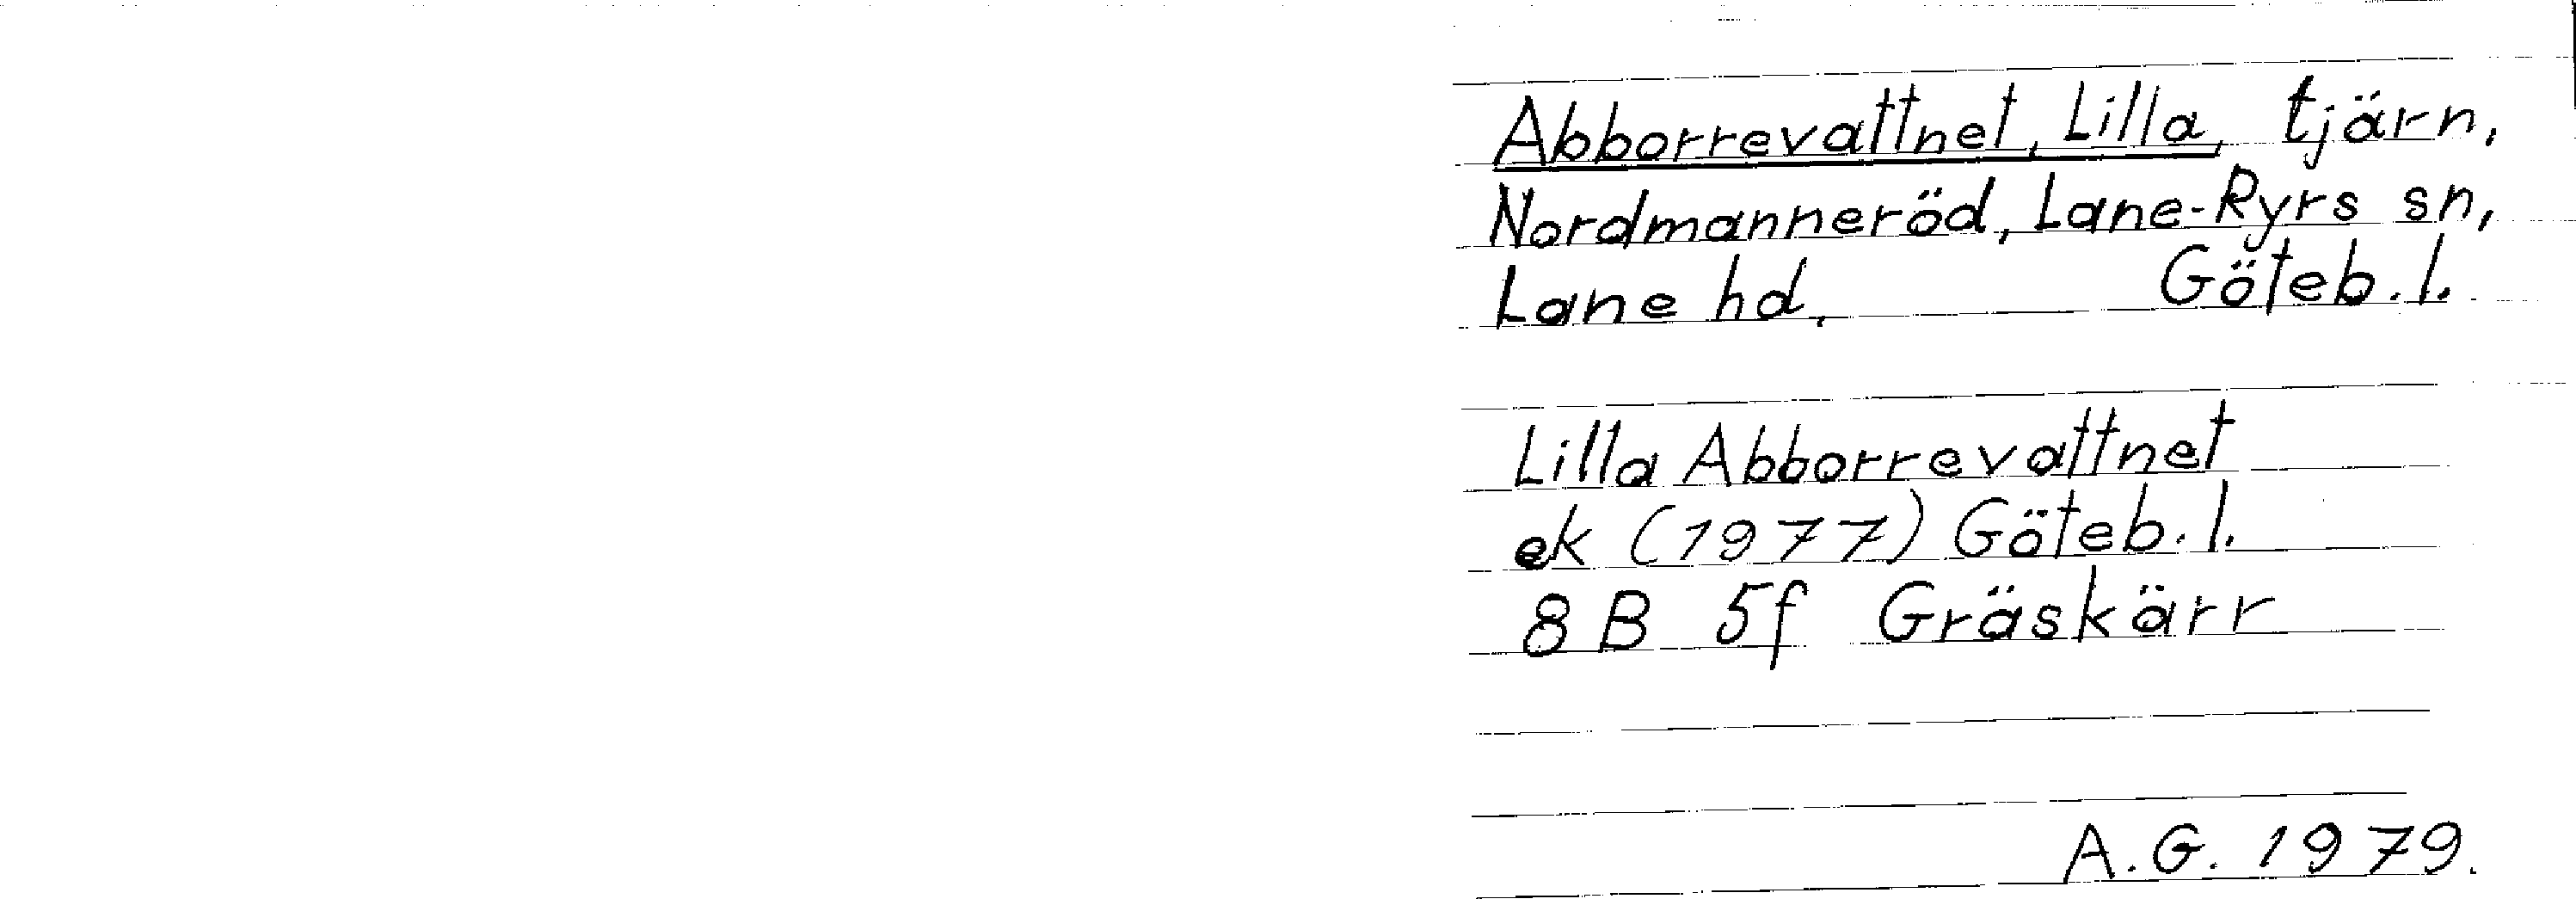 Abborrevattnet, Lilla, tjärn,
Nordmanneröd, Lane-Ryrs sn,
Lane hd, Göteb.l.
Lilla Abborrevattnet
ek (1977) Göteb.l.
8B 5f Gräskärr
A.G. 1979.